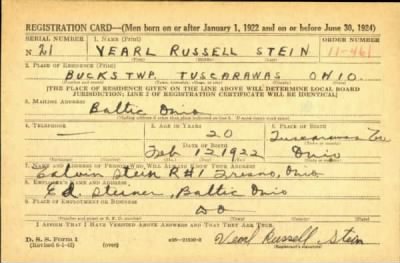 REGISTRATION CARD—(Men born on or after January 1, 1922 and on or before June 30, 1924)
SERIAL NUMBER 1. NAME (Print) ORDER NUMBER
N 21 VEARL RUSSELL STEIN 11-461
(First) (Middle) (Last)
2. PLACE OF RESIDENCE (Print)
BUCKS TWP. TUSCARAWAS OHIO.
[THE PLACE OF RESIDENCE GIVEN ON THE LINE ABOVE WILL DETERMINE LOCAL BOARD
JURISDICTION; LINE 2 OF REGISTRATION CERTIFICATE WILL BE IDENTICAL]
3. MAILING ADDRESS
Baltic Ohio
4. TELEPHONE 5. AGE IN YEARS 6. PLACE OF BIRTH
— 20 Tuscarawas Co
DATE OF BIRTH
Feb 12 1922 Ohio
7. NAME AND ADDRESS OF PERSON WHO WILL ALWAYS KNOW YOUR ADDRESS
Edwin Stein R#1 Fresno, Ohio
8. EMPLOYER'S NAME AND ADDRESS
Ed. Steiner, Baltic Ohio
9. PLACE OF EMPLOYMENT OR BUSINESS
Do
I AFFIRM THAT I HAVE VERIFIED ABOVE ANSWERS AND THAT THEY ARE TRUE.
D. S. S. Form 1
(Revised 6-1-42) (over) Vearl Russell Stein